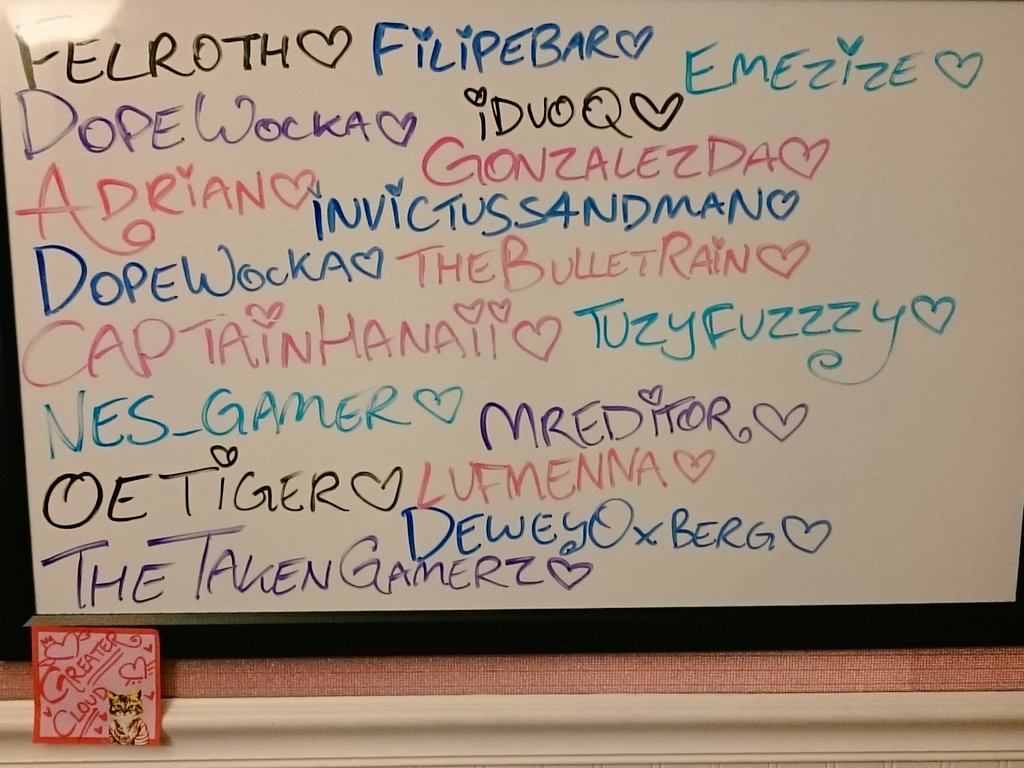 FELROTH♡ FiLiPEBAR♡ EMEZiZE♡
DOPEWOCKA♡ iDUOQ♡
ADRiAN♡ GONZALEZDA♡
iNViCTUSS4NDMAN♡
DOPEWOCKA♡ THEBULLETRAiN♡
CAPTAiNHANAii♡ TUZYFUZZZY♡
NES_GAMER♡ MREDiTOR♡
OETiGER♡ LUFMENNA♡
DEWEYOxBERG♡
THETAKENGAMERZ♡
GREATER
CLOUD